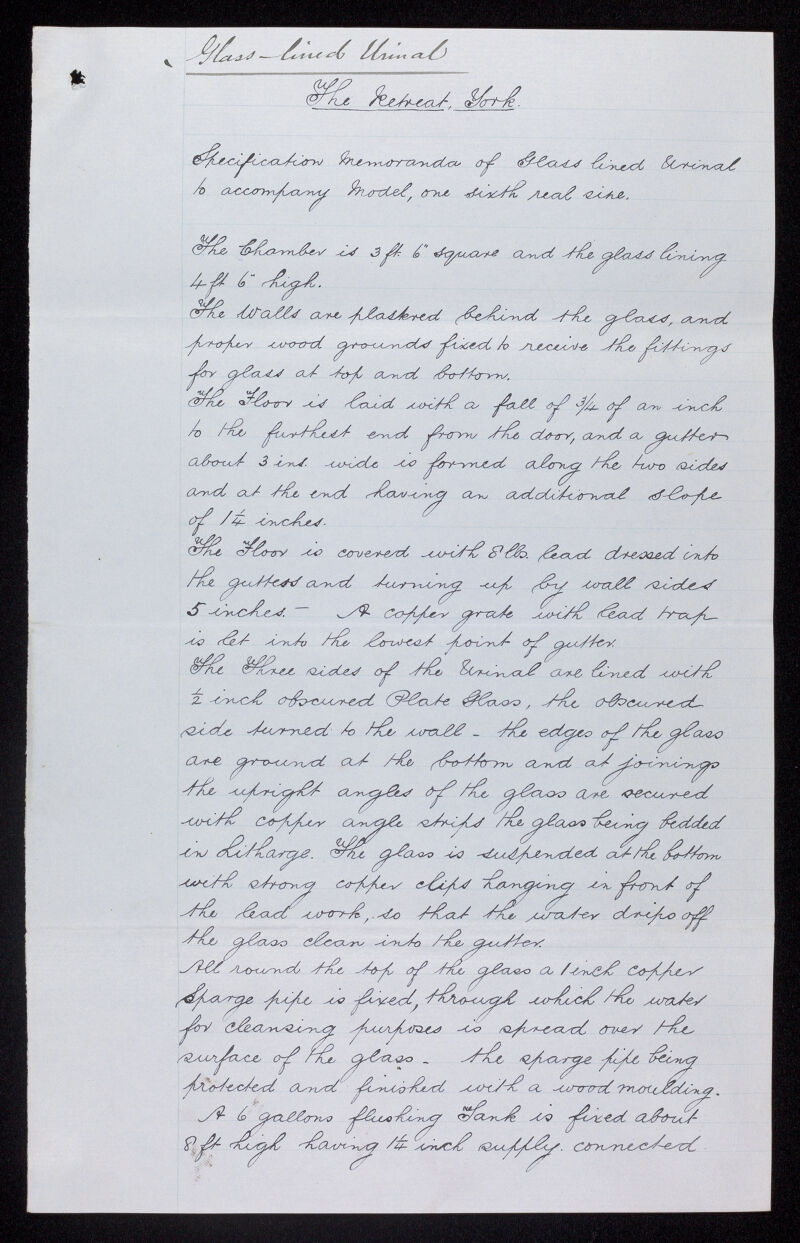 Glass-lined Urinal
The Retreat, York.
Specification Memoranda of Glass lined Urinal
to accompany Model, one sixth real size.
The Chamber is 3 ft. 6" square and the glass lining
4 ft 6" high.
The Walls are plastered behind the glass, and
proper wood grounds fixed to receive the fittings
for glass at top and bottom.
The Floor is laid with a fall of 3/4 of an inch
to the furthest end from the door, and a gutter
about 3 ins. wide is formed along the two sides
and at the end having an additional slope
of 1 1/4 inches.
The Floor is covered with 8 lbs. lead dressed into
the gutters and turning up by wall sides
5 inches. — A copper grate with lead trap
is let into the lowest point of gutter.
The Three sides of the Urinal are lined with
1/2 inch obscured Plate Glass, the obscured
side turned to the wall - the edges of the glass
are ground at the bottom and at joinings
the upright angles of the glass are secured
with copper angle strips the glass being bedded
in Litharge. The glass is suspended at the bottom
with strong copper clips hanging in front of
the lead work, so that the water drips off
the glass clean into the gutter.
All round the top of the glass a 1 inch copper
Sparge pipe is fixed, through which the water
for cleansing purposes is spread over the
surface of the glass - the sparge pipe being
protected and finished with a wood moulding.
A 6 gallons flushing Tank is fixed about
8 ft high having 1 1/4 inch supply. connected